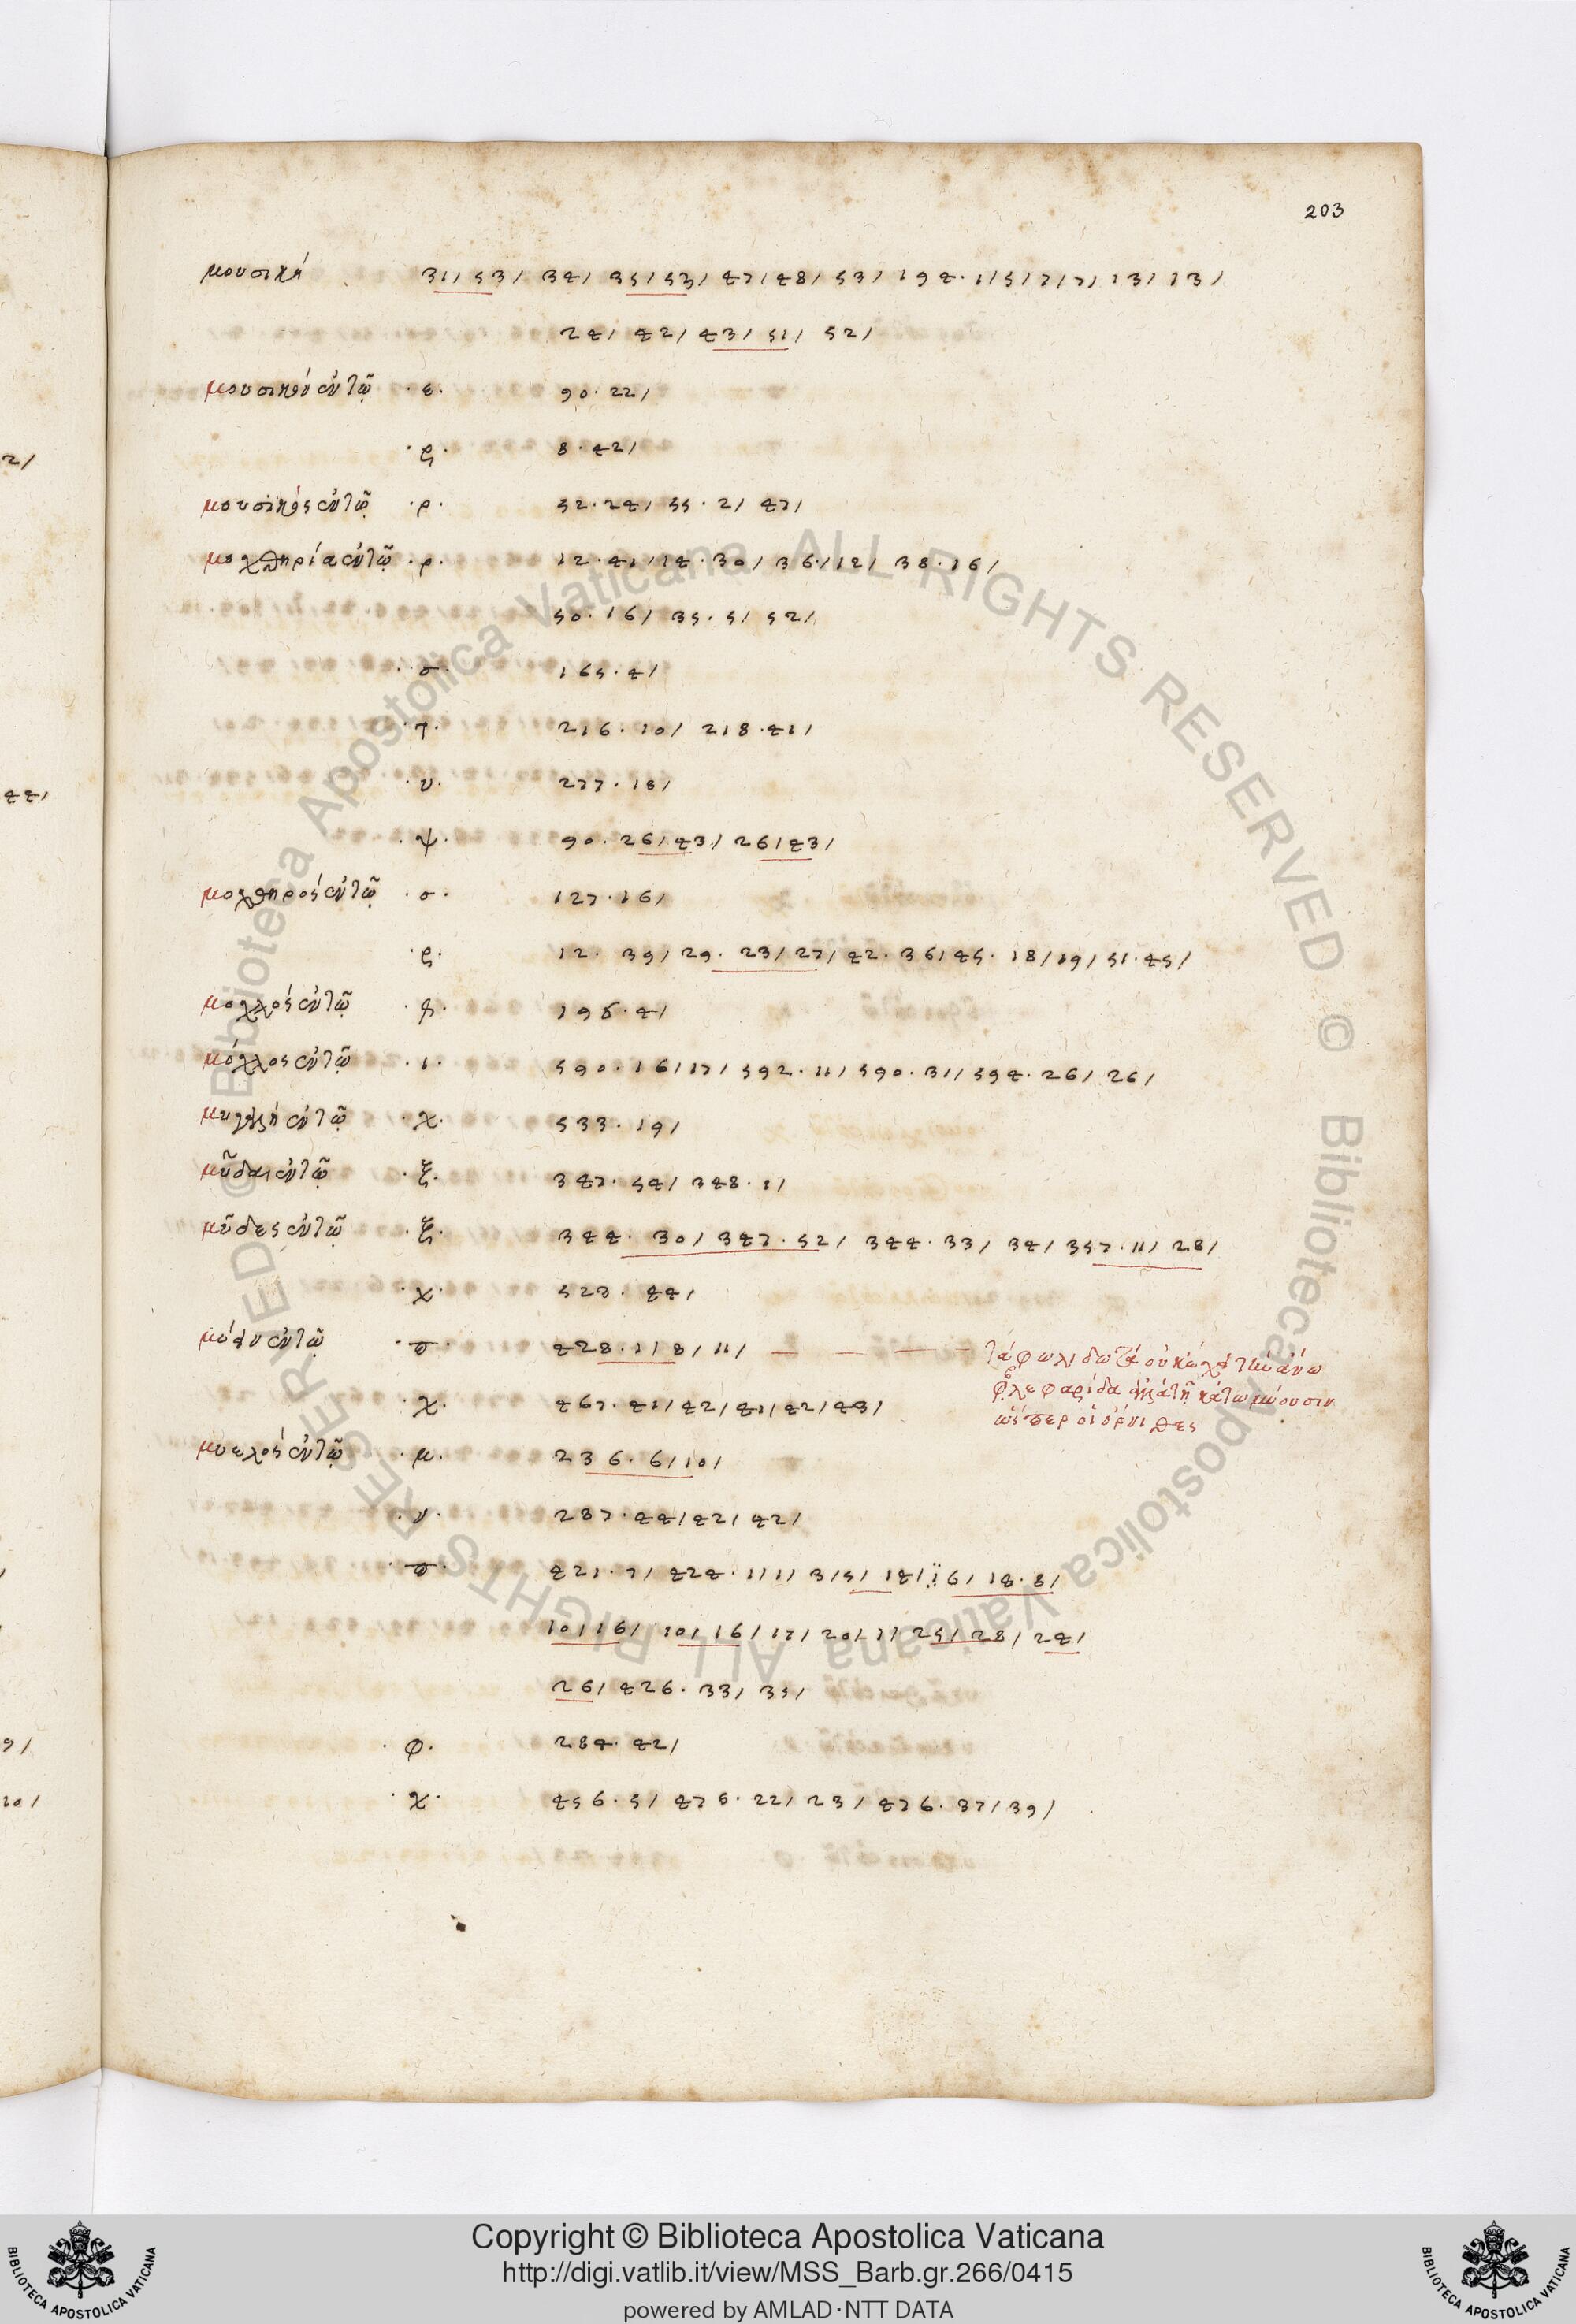 203
μουσικὴ 31/ 53/ 34/ 35/ 53/ 47/ 48/ 53/ 194 · 1/ 5/ 7/ 7/ 13/ 13/
24/ 42/ 43/ 51/ 52/
μουσικὸν ἐν τῷ · ε · 90 · 22/
· ς · 8 · 42/
μουσικὸς ἐν τῷ · ρ · 52 · 24/ 55 · 2/ 47/
μοχθηρία ἐν τῷ · ρ · 12 · 41/ 14 · 30/ 36 · /12/ 38 · 16/
50 · 16/ 35 · 5/ 52/
· σ · 165 · 4/
· τ · 216 · 10/ 218 · 41/
· υ · 277 · 18/
· ψ · 90 · 26/ 43/ 26/ 43/
μοχθηρὸς ἐν τῷ · σ · 127 · 16/
· ς · 12 · 39/ 29 · 23/ 27/ 42 · 36/ 45 · 18/ 19/ 51 · 45/
μοχλὸς ἐν τῷ 198 · 4/
μόχλος ἐν τῷ · ι · 590 · 16/ 17/ 592 · 11/ 590 · 31/ 594 · 26/ 26/
ἐν τῷ · χ · 533 · 19/
μῦδαι ἐν τῷ · ξ · 347 · 54/ 348 · 1/
μῦδες ἐν τῷ · ξ · 344 · 30/ 347 · 52/ 344 · 33/ 34/ 357 · 11/ 28/
· χ · 523 · 44/
ἐν τῷ · π · 428 · 1/ 8/ 11/ — — — — τὰ φωλιδωτὰ οὐ κατὰ τὴν ἄνω
βλεφαρίδα ἀλλὰ τῇ κάτω μύουσιν
ὥσπερ οἱ ὄρνιθες
· χ · 467 · 41/ 42/ 41/ 42/ 43/
μυελὸς ἐν τῷ · μ · 236 · 6/ 10/
· ν · 287 · 44/ 42/ 42/
· π · 421 · 7/ 424 · 1/ 1/ 3/ 5/ 14/ 16/ 14 · 8/
10/ 16/ 10/ 16/ 17/ 20/ 1/ 25/ 28/ 24/
26/ 426 · 33/ 35/
· φ · 284 · 42/
· χ · 456 · 5/ 476 · 22/ 23/ 476 · 37/ 39/
2/
44/
9/
20/
© Biblioteca Apostolica Vaticana ALL RIGHTS RESERVED © Biblioteca Apostolica Vaticana ALL RIGHTS RESERVED
Copyright © Biblioteca Apostolica Vaticana
http://digi.vatlib.it/view/MSS_Barb.gr.266/0415
powered by AMLAD·NTT DATA
BIBLIOTECA APOSTOLICA VATICANA
BIBLIOTECA APOSTOLICA VATICANA